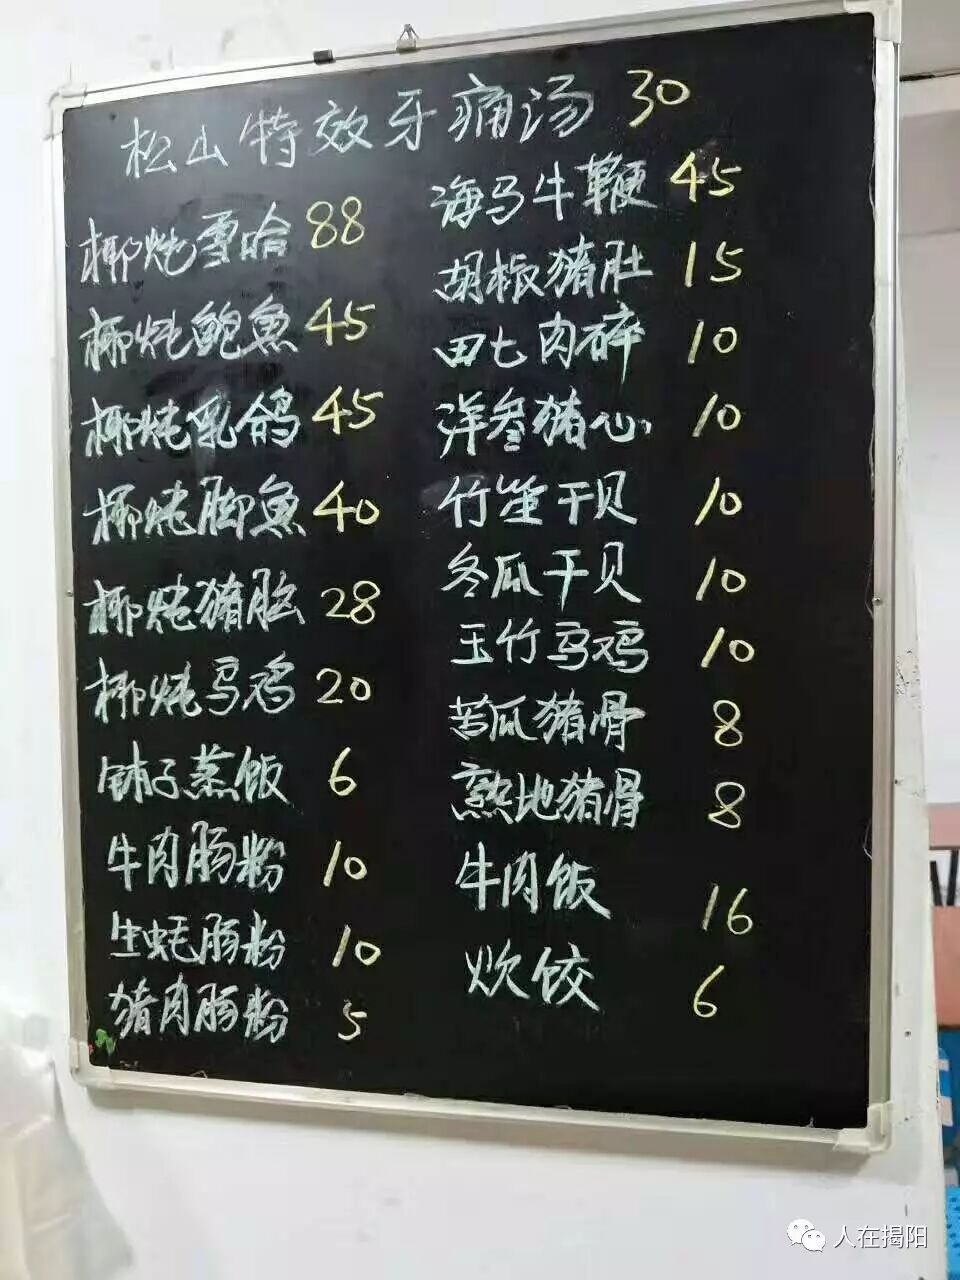 松山特效牙痛汤 30
椰炖雪哈 88
椰炖鲍魚 45
椰炖乳鸽 45
椰炖脚魚 40
椰炖猪脑 28
椰炖乌鸡 20
钵子蒸饭 6
牛肉肠粉 10
生蚝肠粉 10
猪肉肠粉 5
海马牛鞭 45
胡椒猪肚 15
田七肉碎 10
洋参猪心 10
竹笙干贝 10
冬瓜干贝 10
玉竹乌鸡 10
苦瓜猪骨 8
熟地猪骨 8
牛肉饭 16
炊饺 6
人在揭阳